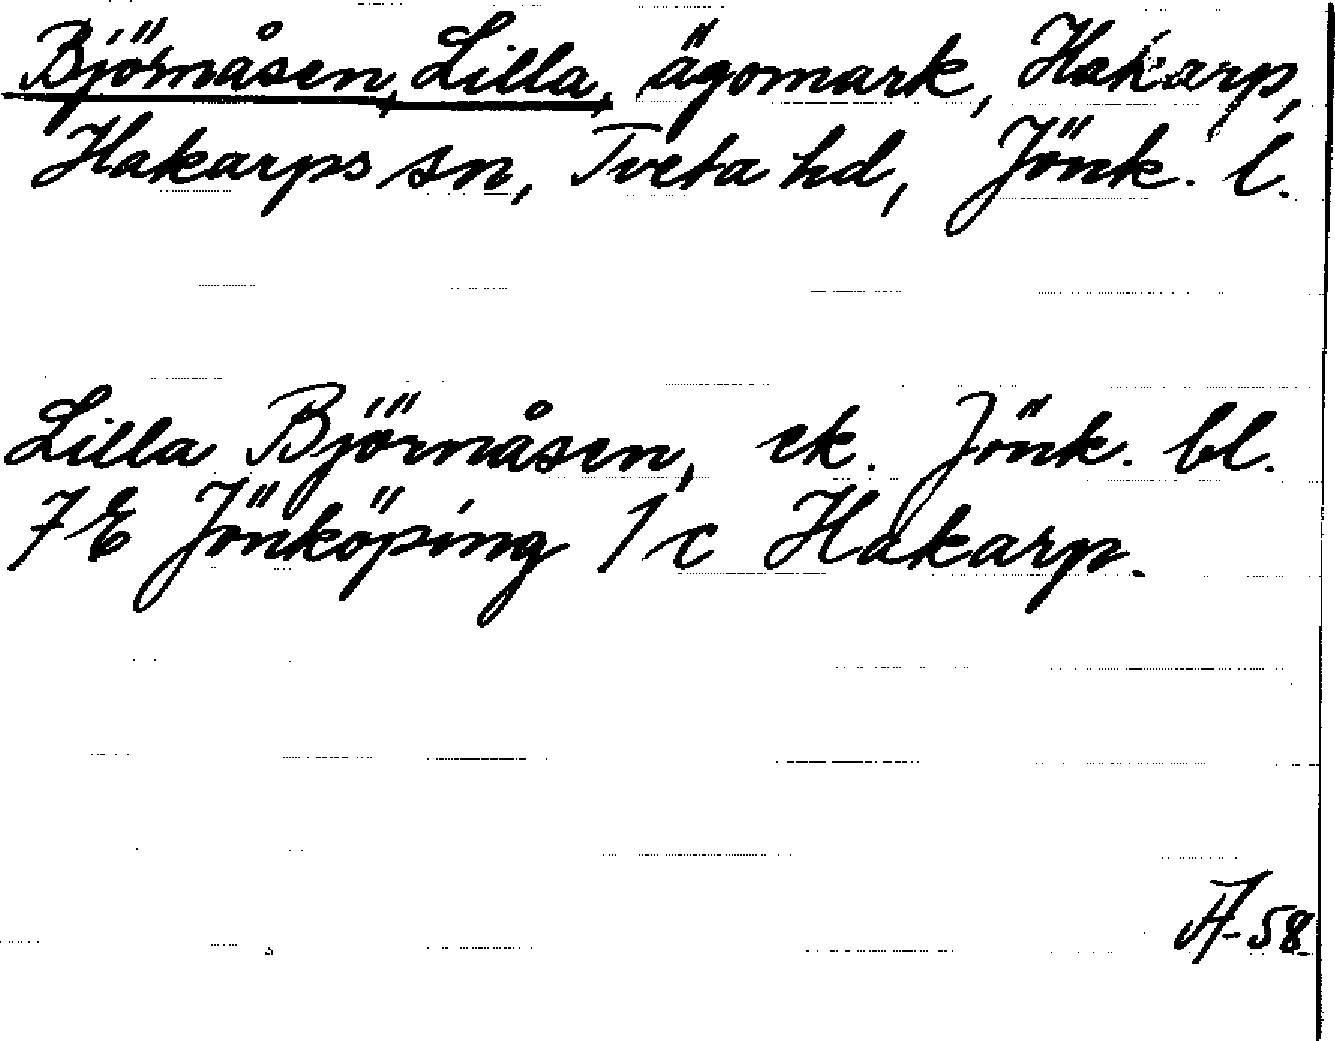 Björnåsen, Lilla, ägomark, Hakarp,
Hakarps sn, Tveta hd, Jönk. l.
Lilla Björnåsen, ek. Jönk. bl.
7E Jönköping 1c Hakarp.
58